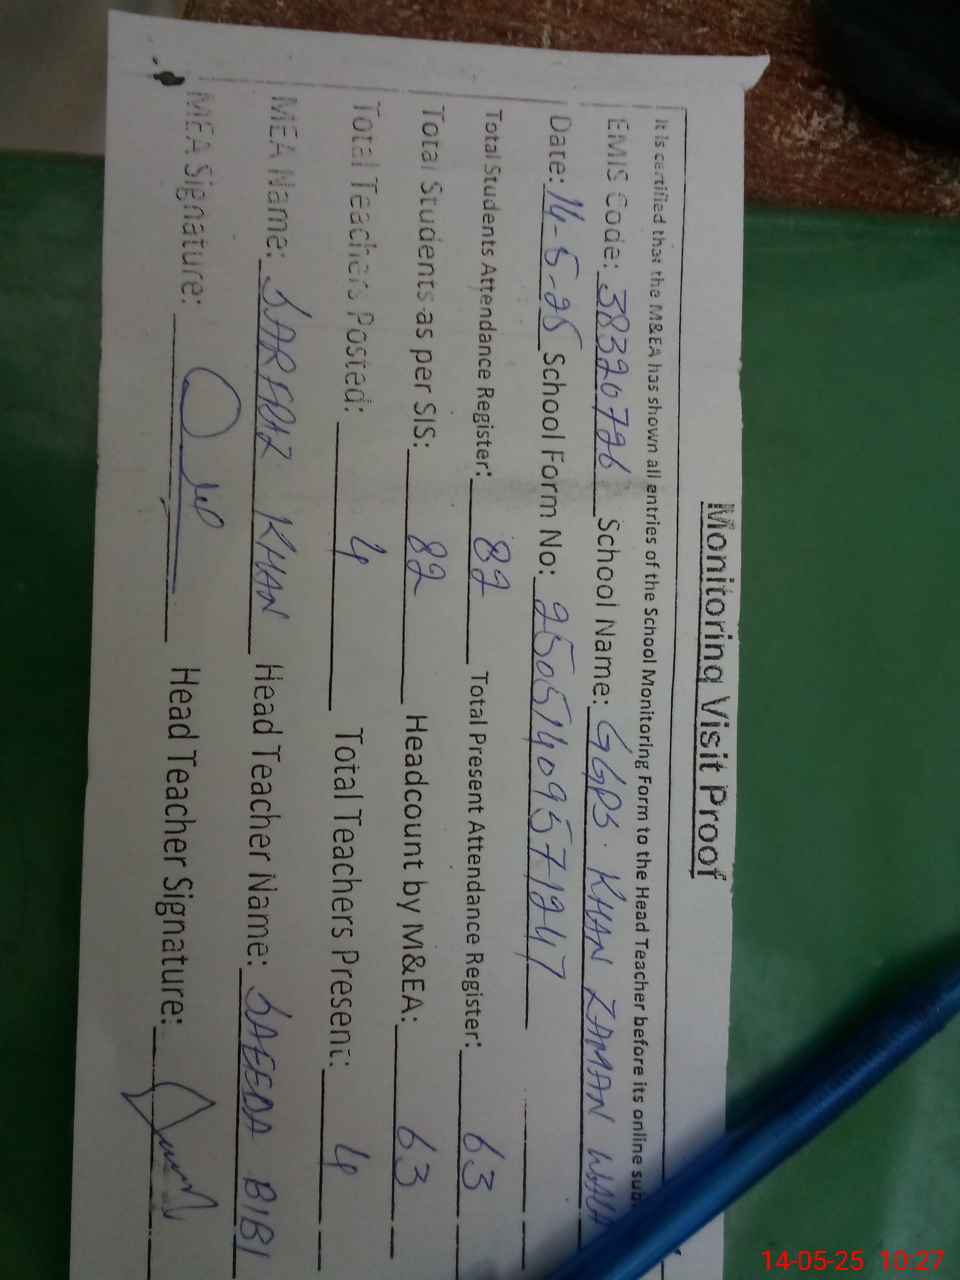 Monitoring Visit Proof
It is certified that the M&EA has shown all entries of the School Monitoring Form to the Head Teacher before its online sub
EMIS Code: 38320726 School Name: GGPS. KHAN ZAMAN WALA
Date: 14-5-25 School Form No: 25051409571247
Total Students Attendance Register: 82 Total Present Attendance Register: 63
Total Students as per SIS: 82 Headcount by M&EA: 63
Total Teachers Posted: 4 Total Teachers Present: 4
MEA Name: SARFRAZ KHAN Head Teacher Name: SAEEDA BIBI
MEA Signature: Head Teacher Signature:
14-05-25 10:27